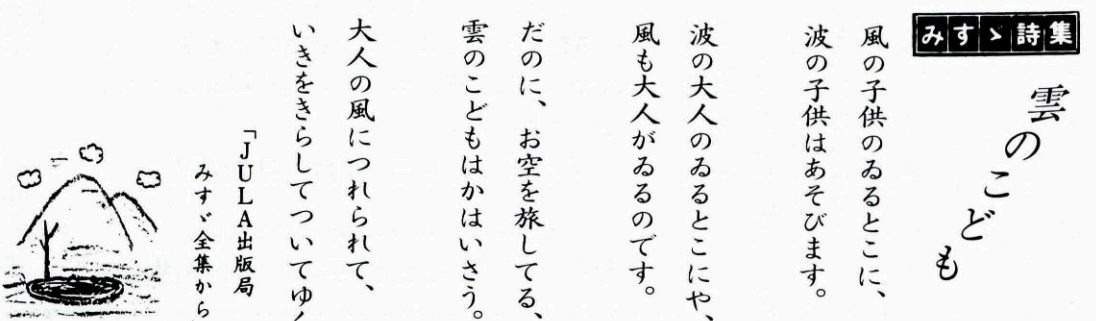 みすゞ詩集
雲のこども
風の子供のゐるとこに、
波の子供はあそびます。
波の大人のゐるとこにや、
風も大人がゐるのです。
だのに、お空を旅してる、
雲のこどもはかはいさう。
大人の風につれられて、
いきをきらしてついてゆく
「JULA出版局
みすゞ全集から